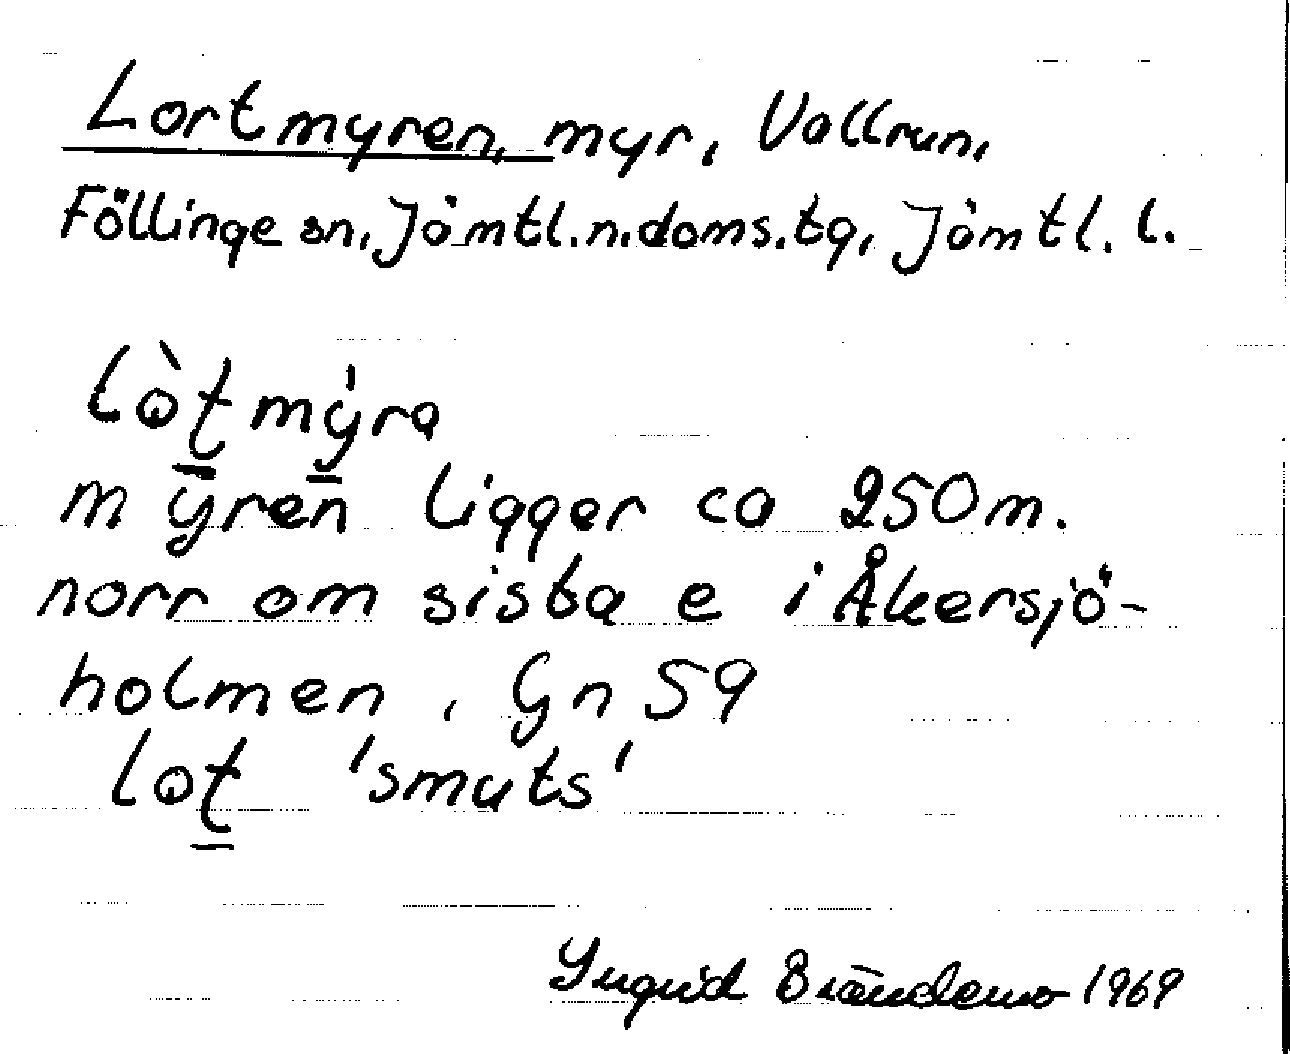 Lortmyren, myr, Vallrun,
Föllinge sn, Jämtl.n.doms.tg, Jämtl. l.
lòt̠mỳra
myren ligger ca 250m.
norr om sista e i Åkersjö-
holmen, Gn 59
lot̠ 'smuts'
Yngvid Brändemo 1969